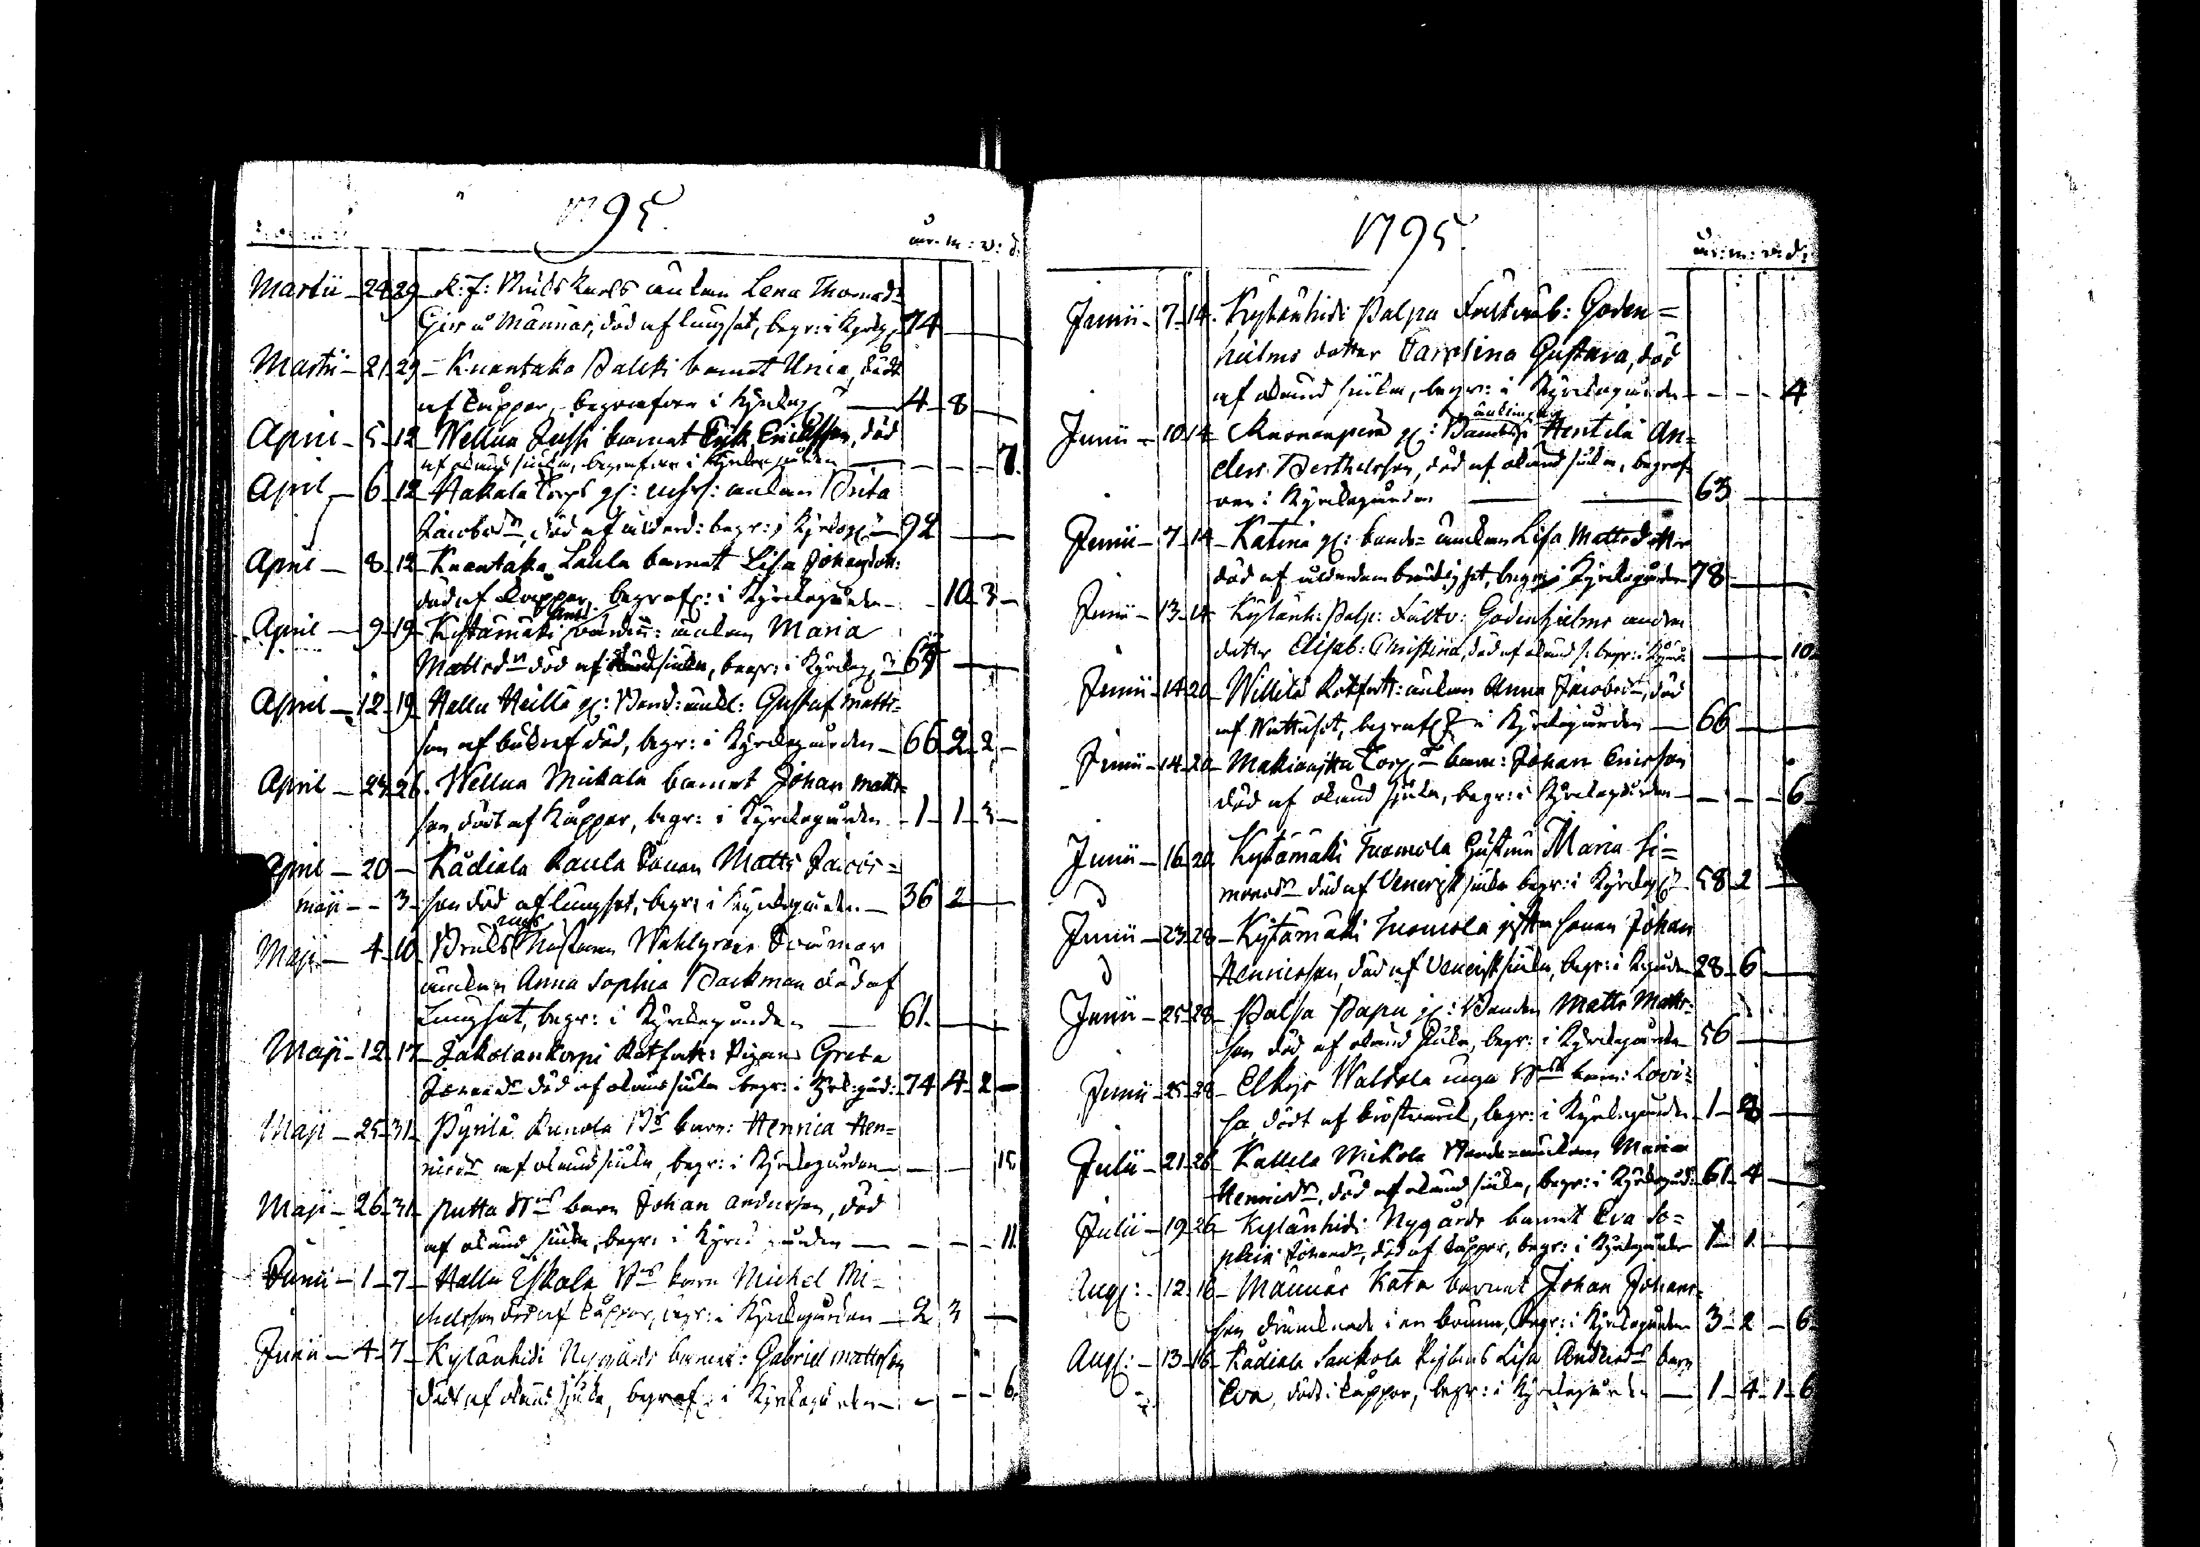 1795.
år. m: v: d:
Martii - 24 29 - K. J: Bruks Karls änkan Lena Thomasd:
Gers å Männäs, död af lungsot, begr: i Kyrkog: 74
Martii - 21. 29 - Knaataka Palcki barnet Unia, dödt
af kåppor, begrafven i Kyrkog: 4 - 8
April - 5 - 12 - Wellua Jussi barnet Erik Ericksson, död
af okänd siuka, begrafven i Kyrkogården - - - 7.
April - 6 - 12 - Hakala Torps änkan Brita
Jacobsdr, död af ålderd: begr: i Kyrkog: - 92
April - 8 - 12 - Knaataka Laula barnet Lisa Johansdott:
död af kåppor, begraf: i Kyrkogården - - 10 - 3 -
April - 9 - 19 - Kytämäki änkan Maria
Mattsdr död af siuka, begr: i Kyrkog: - 69
April - 12 - 19 - Hallu Heillä Bond: änkl: Gustaf Matts-
son af död, begr: i Kyrkogården - 66 - 2 - 2 -
April - 23 26. Wellua Mickala barnet Johan Matts-
son, dödt af Kåppor, begr: i Kyrkogården - 1 - 1 - 3 -
April - 20 - Kådiala Kaula Sonen Matts Jacobs-
Maji - - 3 - son död af lungsot, begr: i Kyrkogården - 36 2
Maji - 4 - 10 Bruks Mästaren Wahlgrens
änkan Anna Sophia Backman död af
Lungsot, begr: i Kyrkogården - 61.
Maji - 12 17 - Jakolankorpi Rotfatt: Pigan Greta
död af okänd siuka begr: i Kyrk:gård: - 74 4 - 2 -
Maji - 25 - 31 - Pyrilä Runola Bs barn: Henrica Hen-
ricsdr af okänd siuka, begr: i Kyrkogården - - 15
Maji - 26 - 31 - Putta Bs barn Johan Andersson, död
af okänd siuka, begr: i Kyrkogården - - - 11.
Junii - 1 - 7 - Hallu Eskola Bs barn Michel Mi-
chelsson död af kåppor, begr: i Kyrkogården - 2 3 -
Junii - 4 - 7 - Kylänhidi Nygårds barnet: Gabriel Mattsson
dödt af okänd siuka, begraf: i Kyrkogården - - - 6.
1795.
år: m: v: d:
Junii - 7 - 14. Kylänhidi Palpa Fältväb: Goden=
hielms dotter Carolina Gustava, död
af okänd siuka, begr: i Kyrkogården - - - 4
Junii - 10 14 - änklingen Hentilä An=
ders Berthelsson, död af okänd siuka, begraf-
ven i Kyrkogården 63
Junii - 7 - 14 - Katina bonde- änkan Lisa Mattsdotter
död af ålderdoms bräcklighet, begr: i Kyrkogården 78
Junii - 13 - 14 Kylänh: Palp: Fältv: Godenhielms andra
dotter Elisab: Christina, död af okänd s: begr: i Kyrk: - 10.
Junii - 14 20 - Willilä Rotfatt: änkan Anna Jacobsdr, död
af Wattusot, begrafen i Kyrkogården - 66
Junii - 14 - 20 - Barn: Johan Ericsson
död af okänd siuka, begr: i Kyrkogården - - - 6
Junii - 16 - 20 Kytämäki Tuomola Hustrun Maria Si=
monsdr död af Venerisk siuka begr: i Kyrkog: - 58 - 2
Junii - 23 - 28 - Kytämäki Tuomola gifta sonen Johan
Henricsson, död af Venerisk siuka, begr: i Kyrkogården 28 - 6
Junii - 25 28 - Palsa Papu Bonden Matts Matts-
son död af okänd siuka, begr: i Kyrkogården 56
Junii - 25 - 28 - Elkijs Waltola unga barn: Lovi-
sa, dödt af bröstvärck, begr: i Kyrkogården - 1 - 8
Julii - 21 - 26 - Kallela Mikola Bonde-änkan Maria
Henricsdr, död af okänd siuka, begr: i Kyrkogård: 61 - 4
Julii - 19 - 26 - Kylänhidi Nygårds barnet Eva So=
phia Johansdr, död af kåppor, begr: i Kyrkogården 1 - 1
Aug: - 12 - 16 - Männäs Kata barnet Johan Johans-
son drunknade i en brunn, begr: i Kyrkogården 3 - 2 - 6
Aug: - 13 - 16 - Kådiala Saukola Pigans Lisa Andersdr barn
Eva, död i kåppor, begr: i Kyrkogården - 1 - 4 - 1 - 6